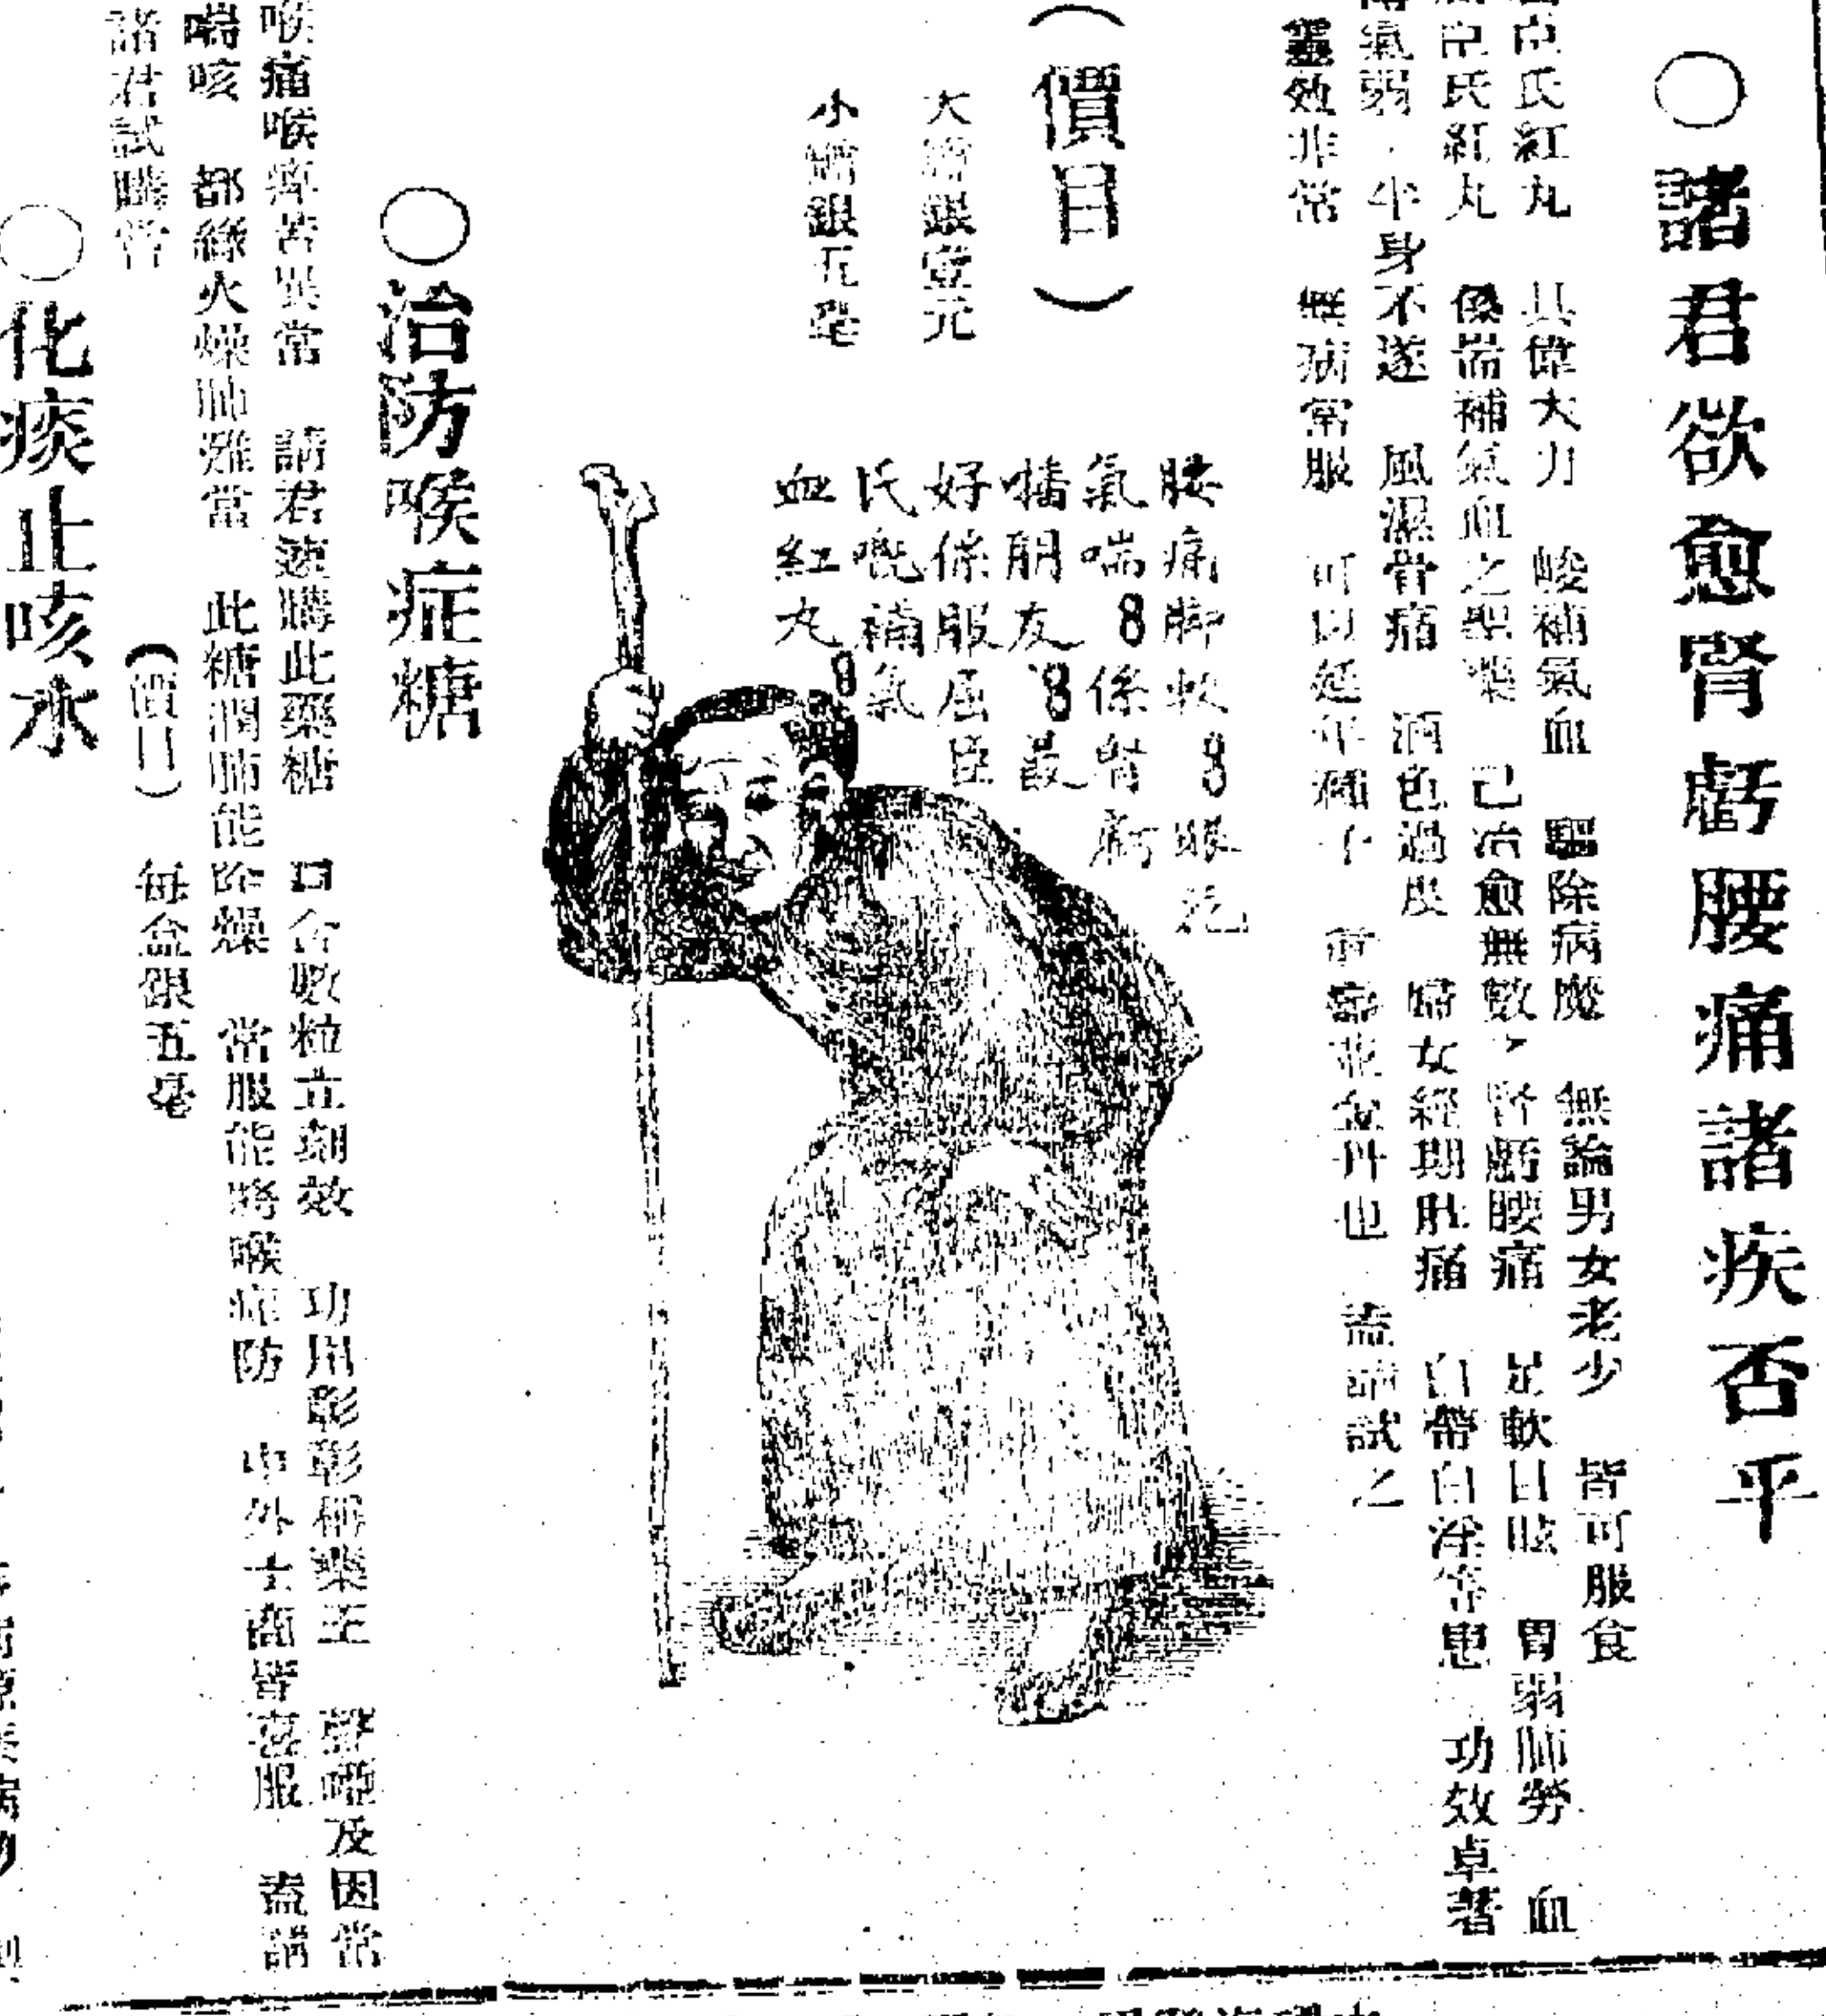 ○諸君欲愈腎虧腰痛諸疾否乎
臣氏紅丸 具偉大力 峻補氣血 驅除病魔 無論男女老少 皆可服食
臣氏紅丸 係耑補氣血之聖藥 已治愈無數 腎虧腰痛 足軟目眩 胃弱肺勞 血
氣弱 半身不遂 風濕骨痛 酒色過度 婦女經期肚痛 白帶白淫等患 功效卓著
靈效非常 無病常服 可以延年種子 盍請試之
(價目)
大樽銀壹元
小樽銀五毫
腰痛脚軟8眼花
氣喘8係腎虧
朋友8最
好係服屈臣
氏嘅補氣
血紅丸8
○治防喉症糖
喉痛喉痺苦異常 請君速購此藥糖 口含數粒立刻效 功用彰彰稱藥王 聲啞及因常
喘咳 都緣火燥肺難當 此糖潤肺能除燥 常服能將喉症防 中外士商皆喜服 盍請
諸君試購嘗
(價目) 每盒銀五毫
○化痰止咳水